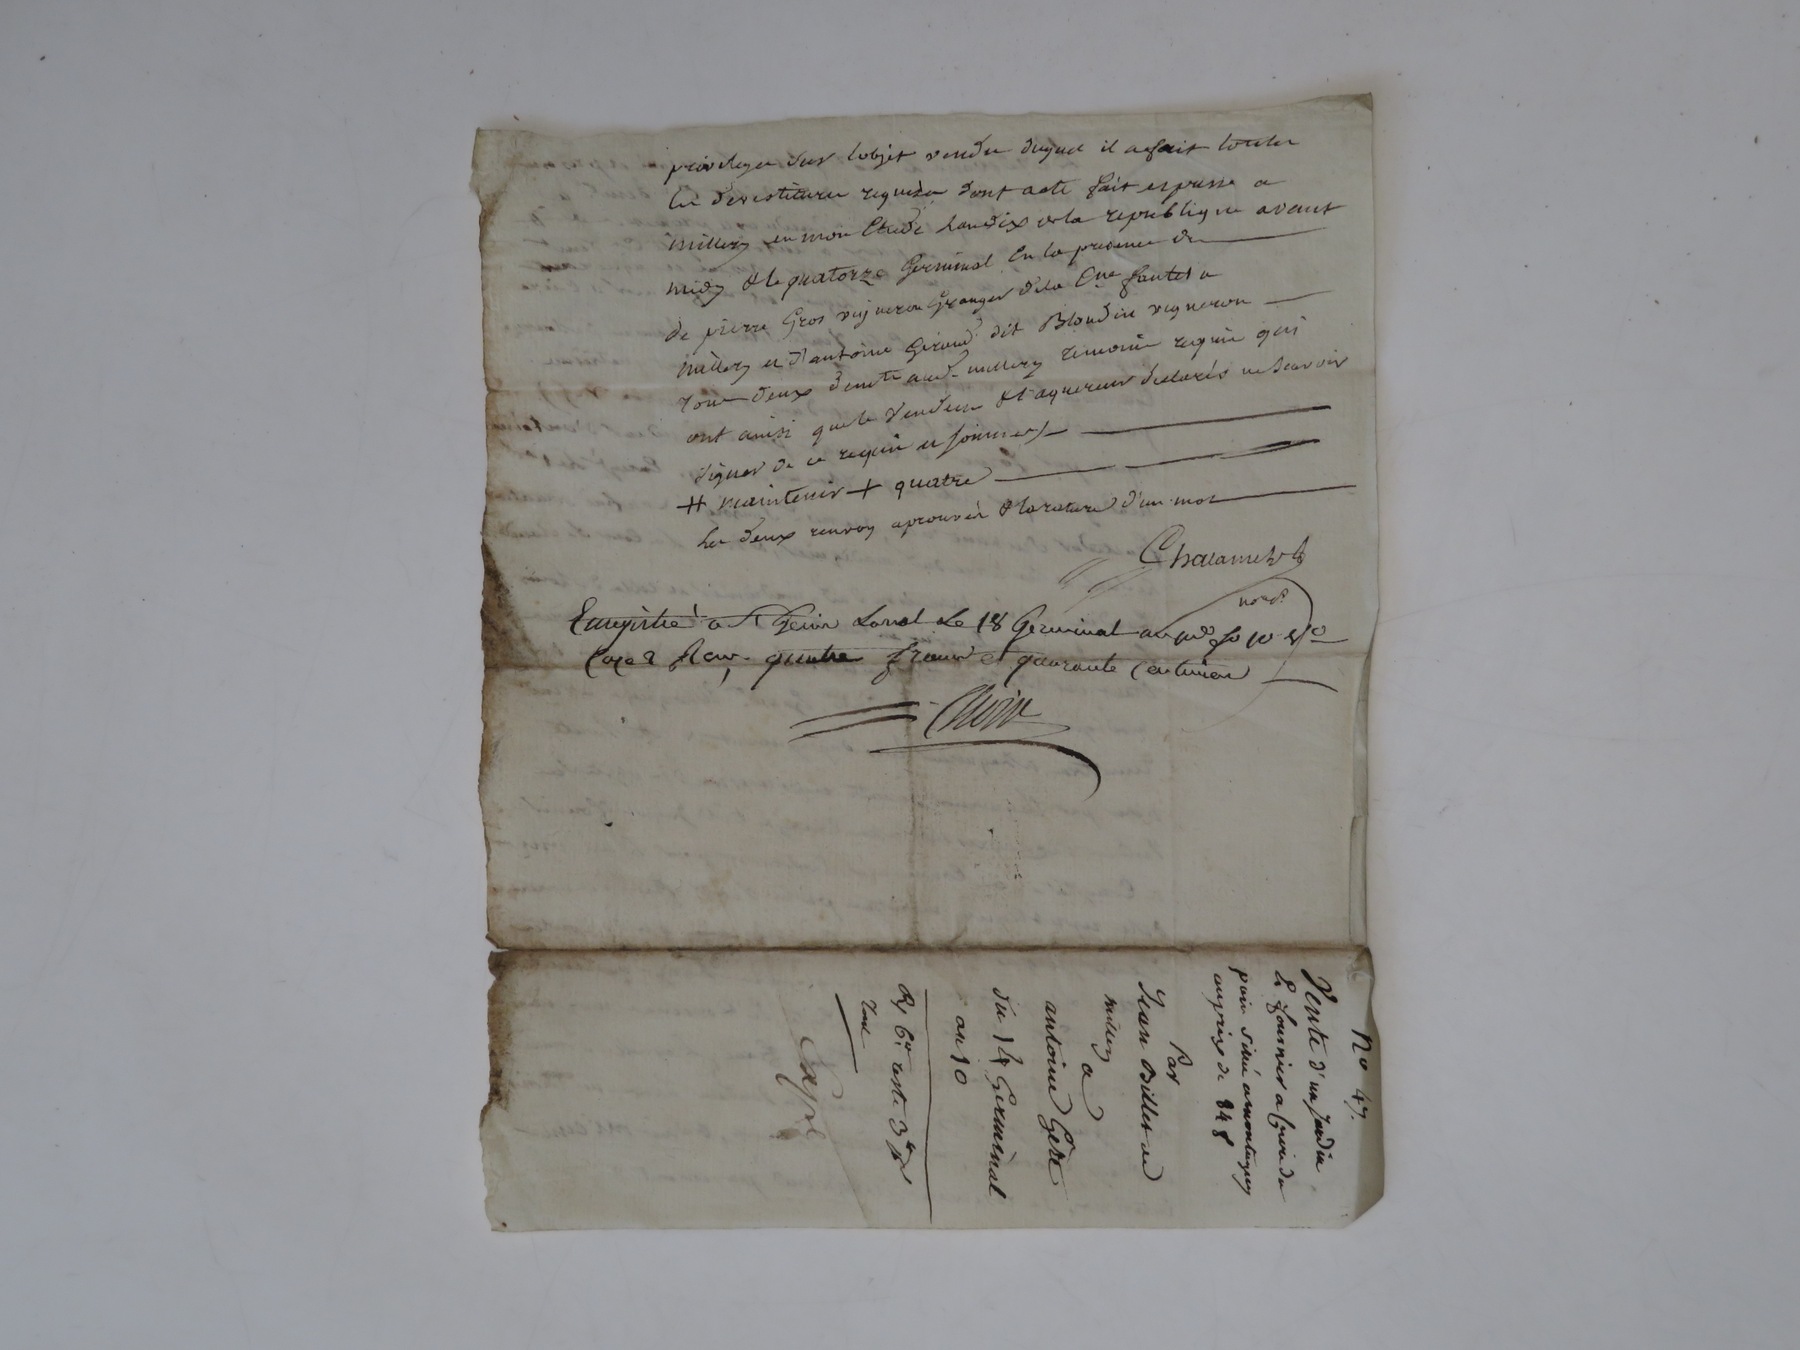 privilege sur lobjet vendu duquel il a fait toutes
les devestitures requises dont acte fait et passé a
millery en mon Etude lan dix de la republique avant
midy & le quatorze Germinal En la presence de
de pierre Gros vigneron Granger de la Cne fautes a
millery et d'antoine Giraud dit Blondin vigneron
tous deux dem.t aud. millery temoins requis qui
ont ainsi que le vendeur & l'aquereur declarés ne scavoir
signer de ce requis et sommes /
# maintenir + quatre
les deux renvoy aprouvés & la rature d'un mot
not.e
Enregistré a St Genis Laval Le 18 Germinal an fo 10 Vo
Case 2 Recu quatre francs et quarante Centimes
no 47.
Vente d'un jardin
pair situé a montagny
au prix de 848
Par
Jean Billet de
millery
a
antoine
du 14 Germinal
an 10